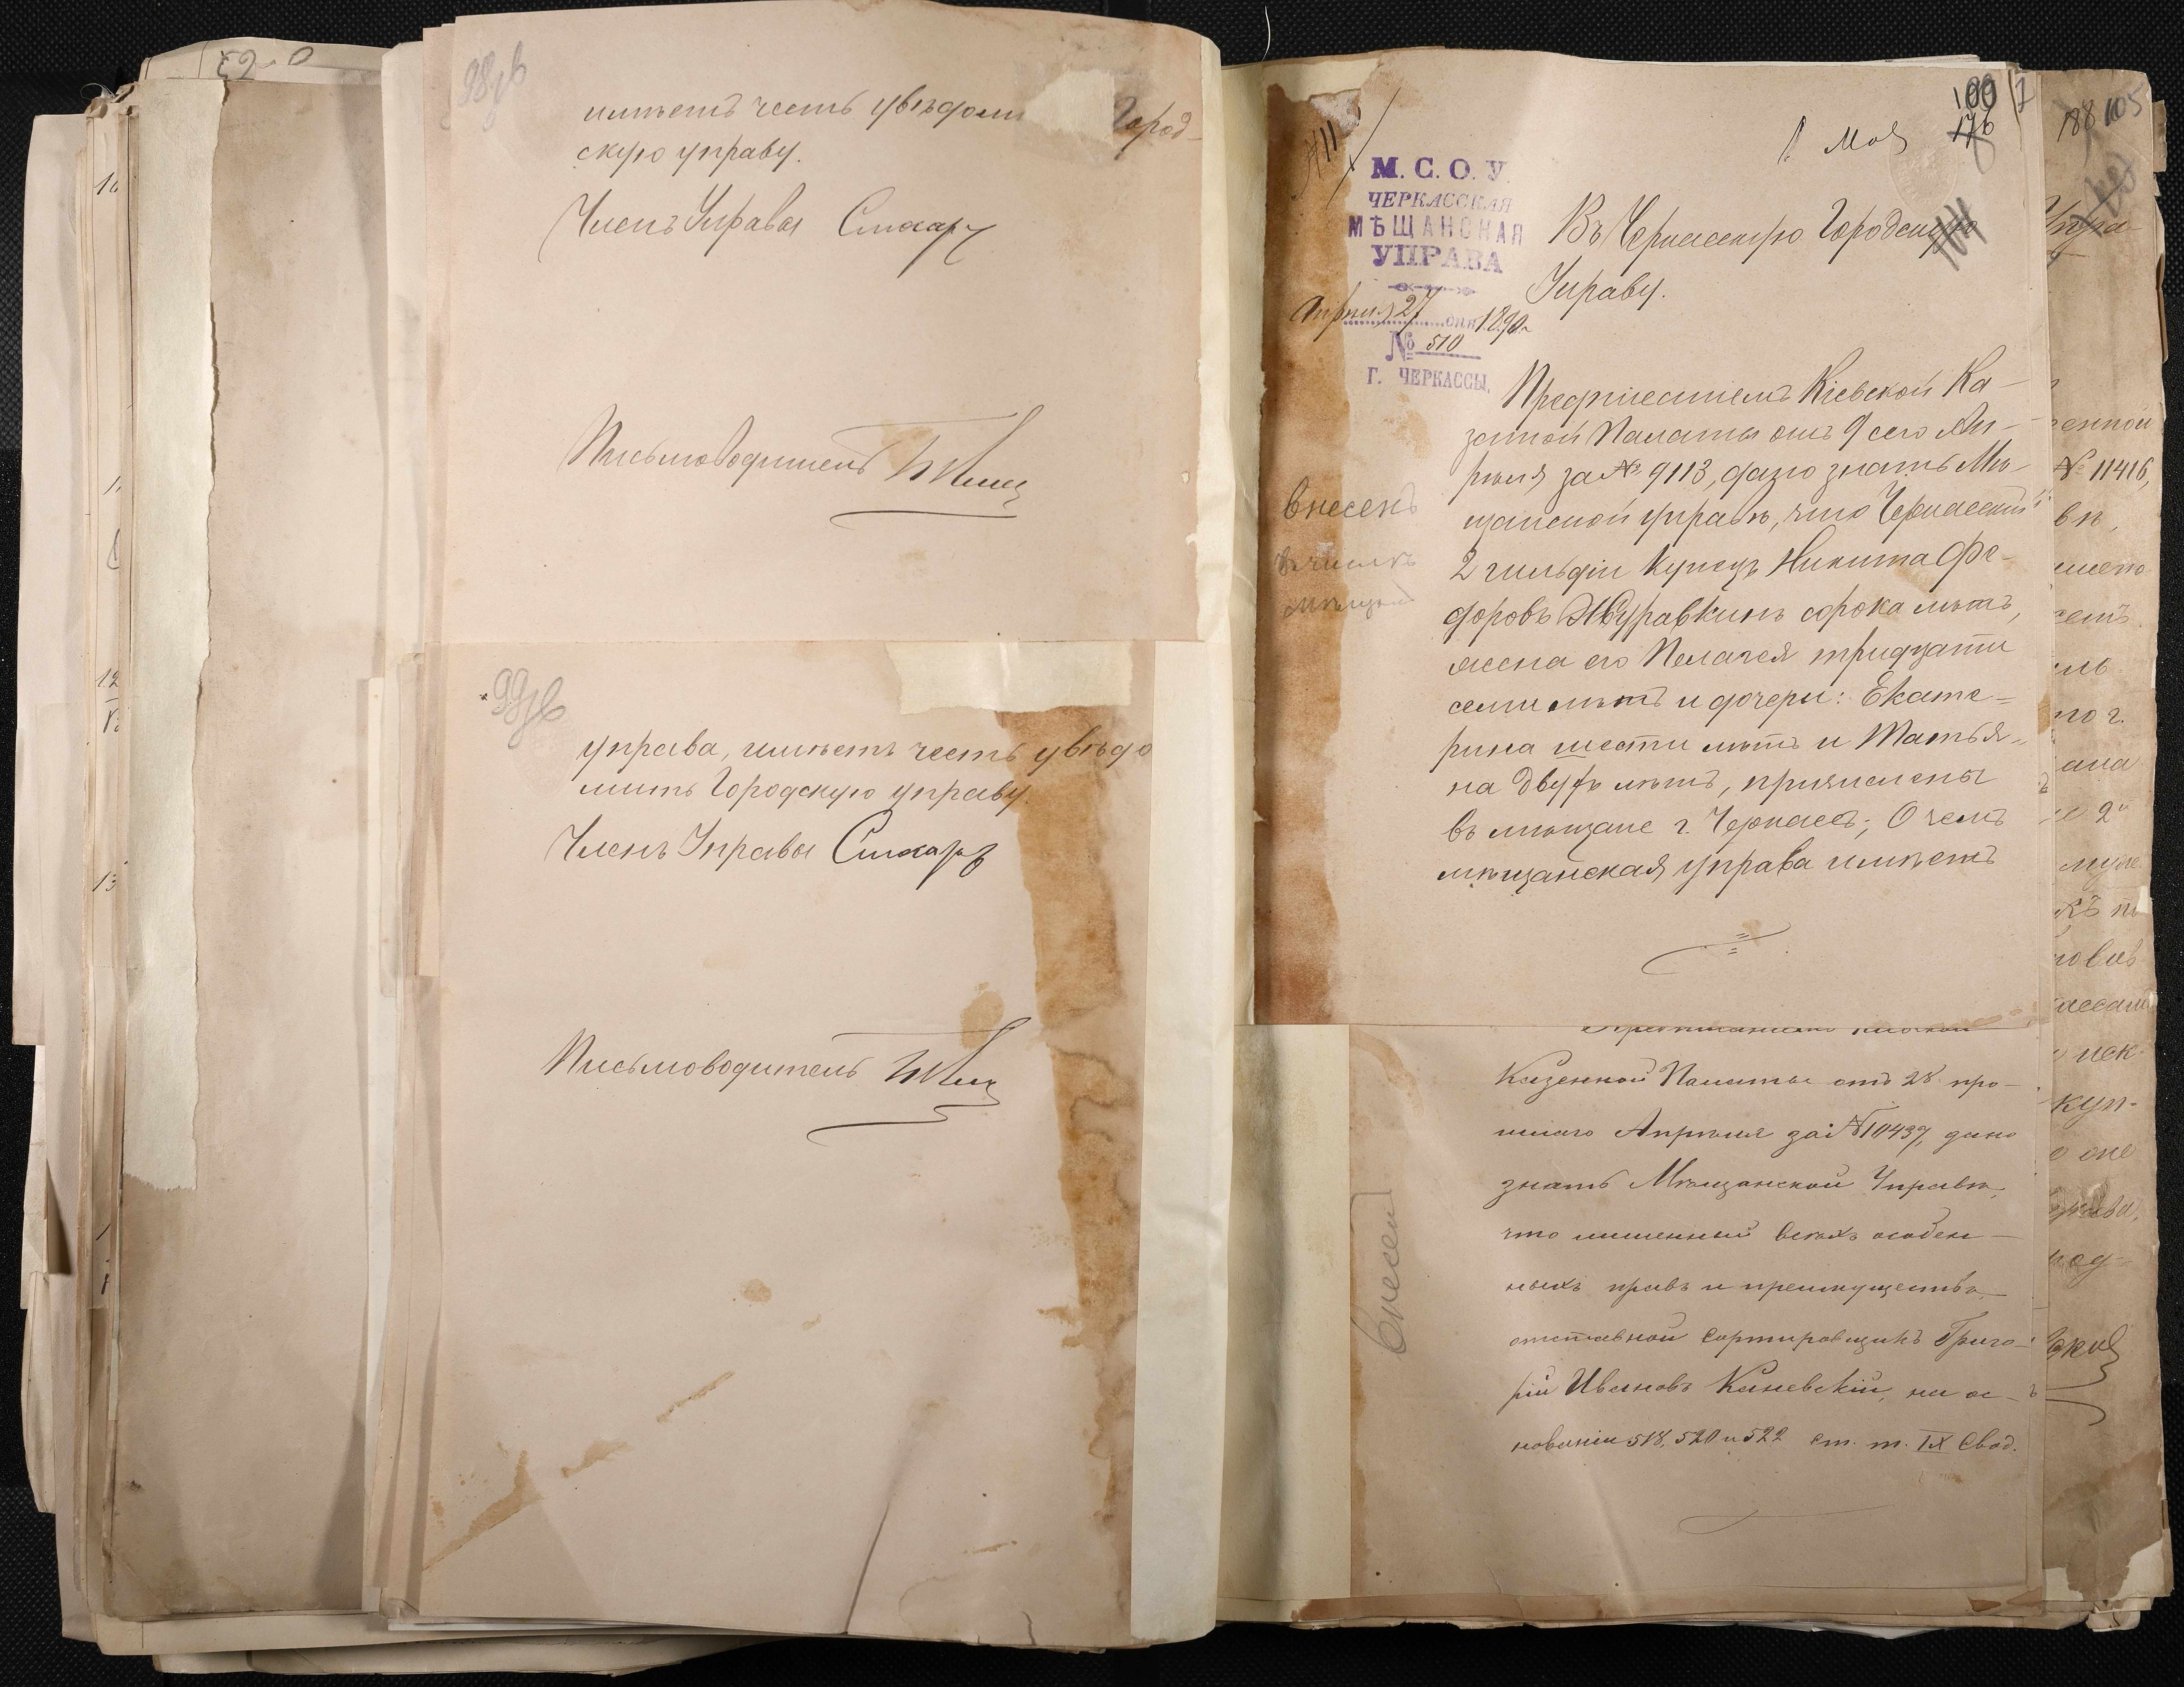 98 об
имѣетъ честь увѣдоми Город-
скую управу.
Членъ Управы
Письмоводитель
99 об
управа, имѣетъ честь увѣдо
мить Городскую управу.
Членъ Управы
Письмоводитель
100
176
1 Мая
М. С. О. У.
ЧЕРКАССКАЯ
МѢЩАНСКАЯ
УПРАВА
Апрѣля 27 дня 1890 г.
№ 510
Г. ЧЕРКАССЫ.
Въ Черкасскую Городскую
Управу.
Предписаніемъ Кіевской Ка-
зенной Палаты отъ 9 сего Ап-
рѣля за № 9113, дано знать Мѣ-
щанской управѣ, что Черкасскій
2 гильдіи купецъ Никита Фе-
доровъ Журавкинъ сорока лѣтъ,
жена его Пелагея тридцати
семи лѣтъ и дочери: Екате=
рина шести лѣтъ и Татья=
на двухъ лѣтъ, причислены
въ мѣщане г. Черкасъ; О чемъ
мѣщанская управа имѣетъ
внесенъ
Казенной Палаты отъ 28 про-
шлаго Апрѣля за № 10437, дано
знать Мѣщанской Управѣ,
что лишенный всѣхъ особен-
ныхъ правъ и преимуществъ
отставной сортировщикъ Григо-
рій Ивановъ Каневскій, на ос-
нованіи 518, 520 и 522 ст. т. IX Свод.
внесен
188 105
Упра-
енной
№ 11416,
вѣ,